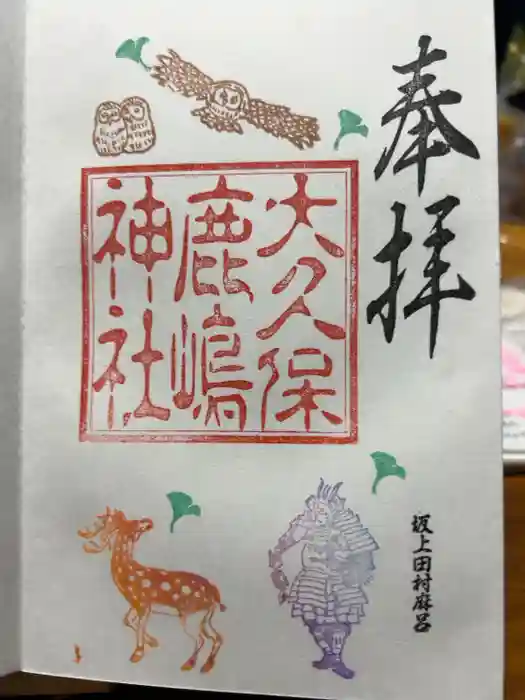 奉拝
大久保
鹿嶋
神社
坂上田村麻呂